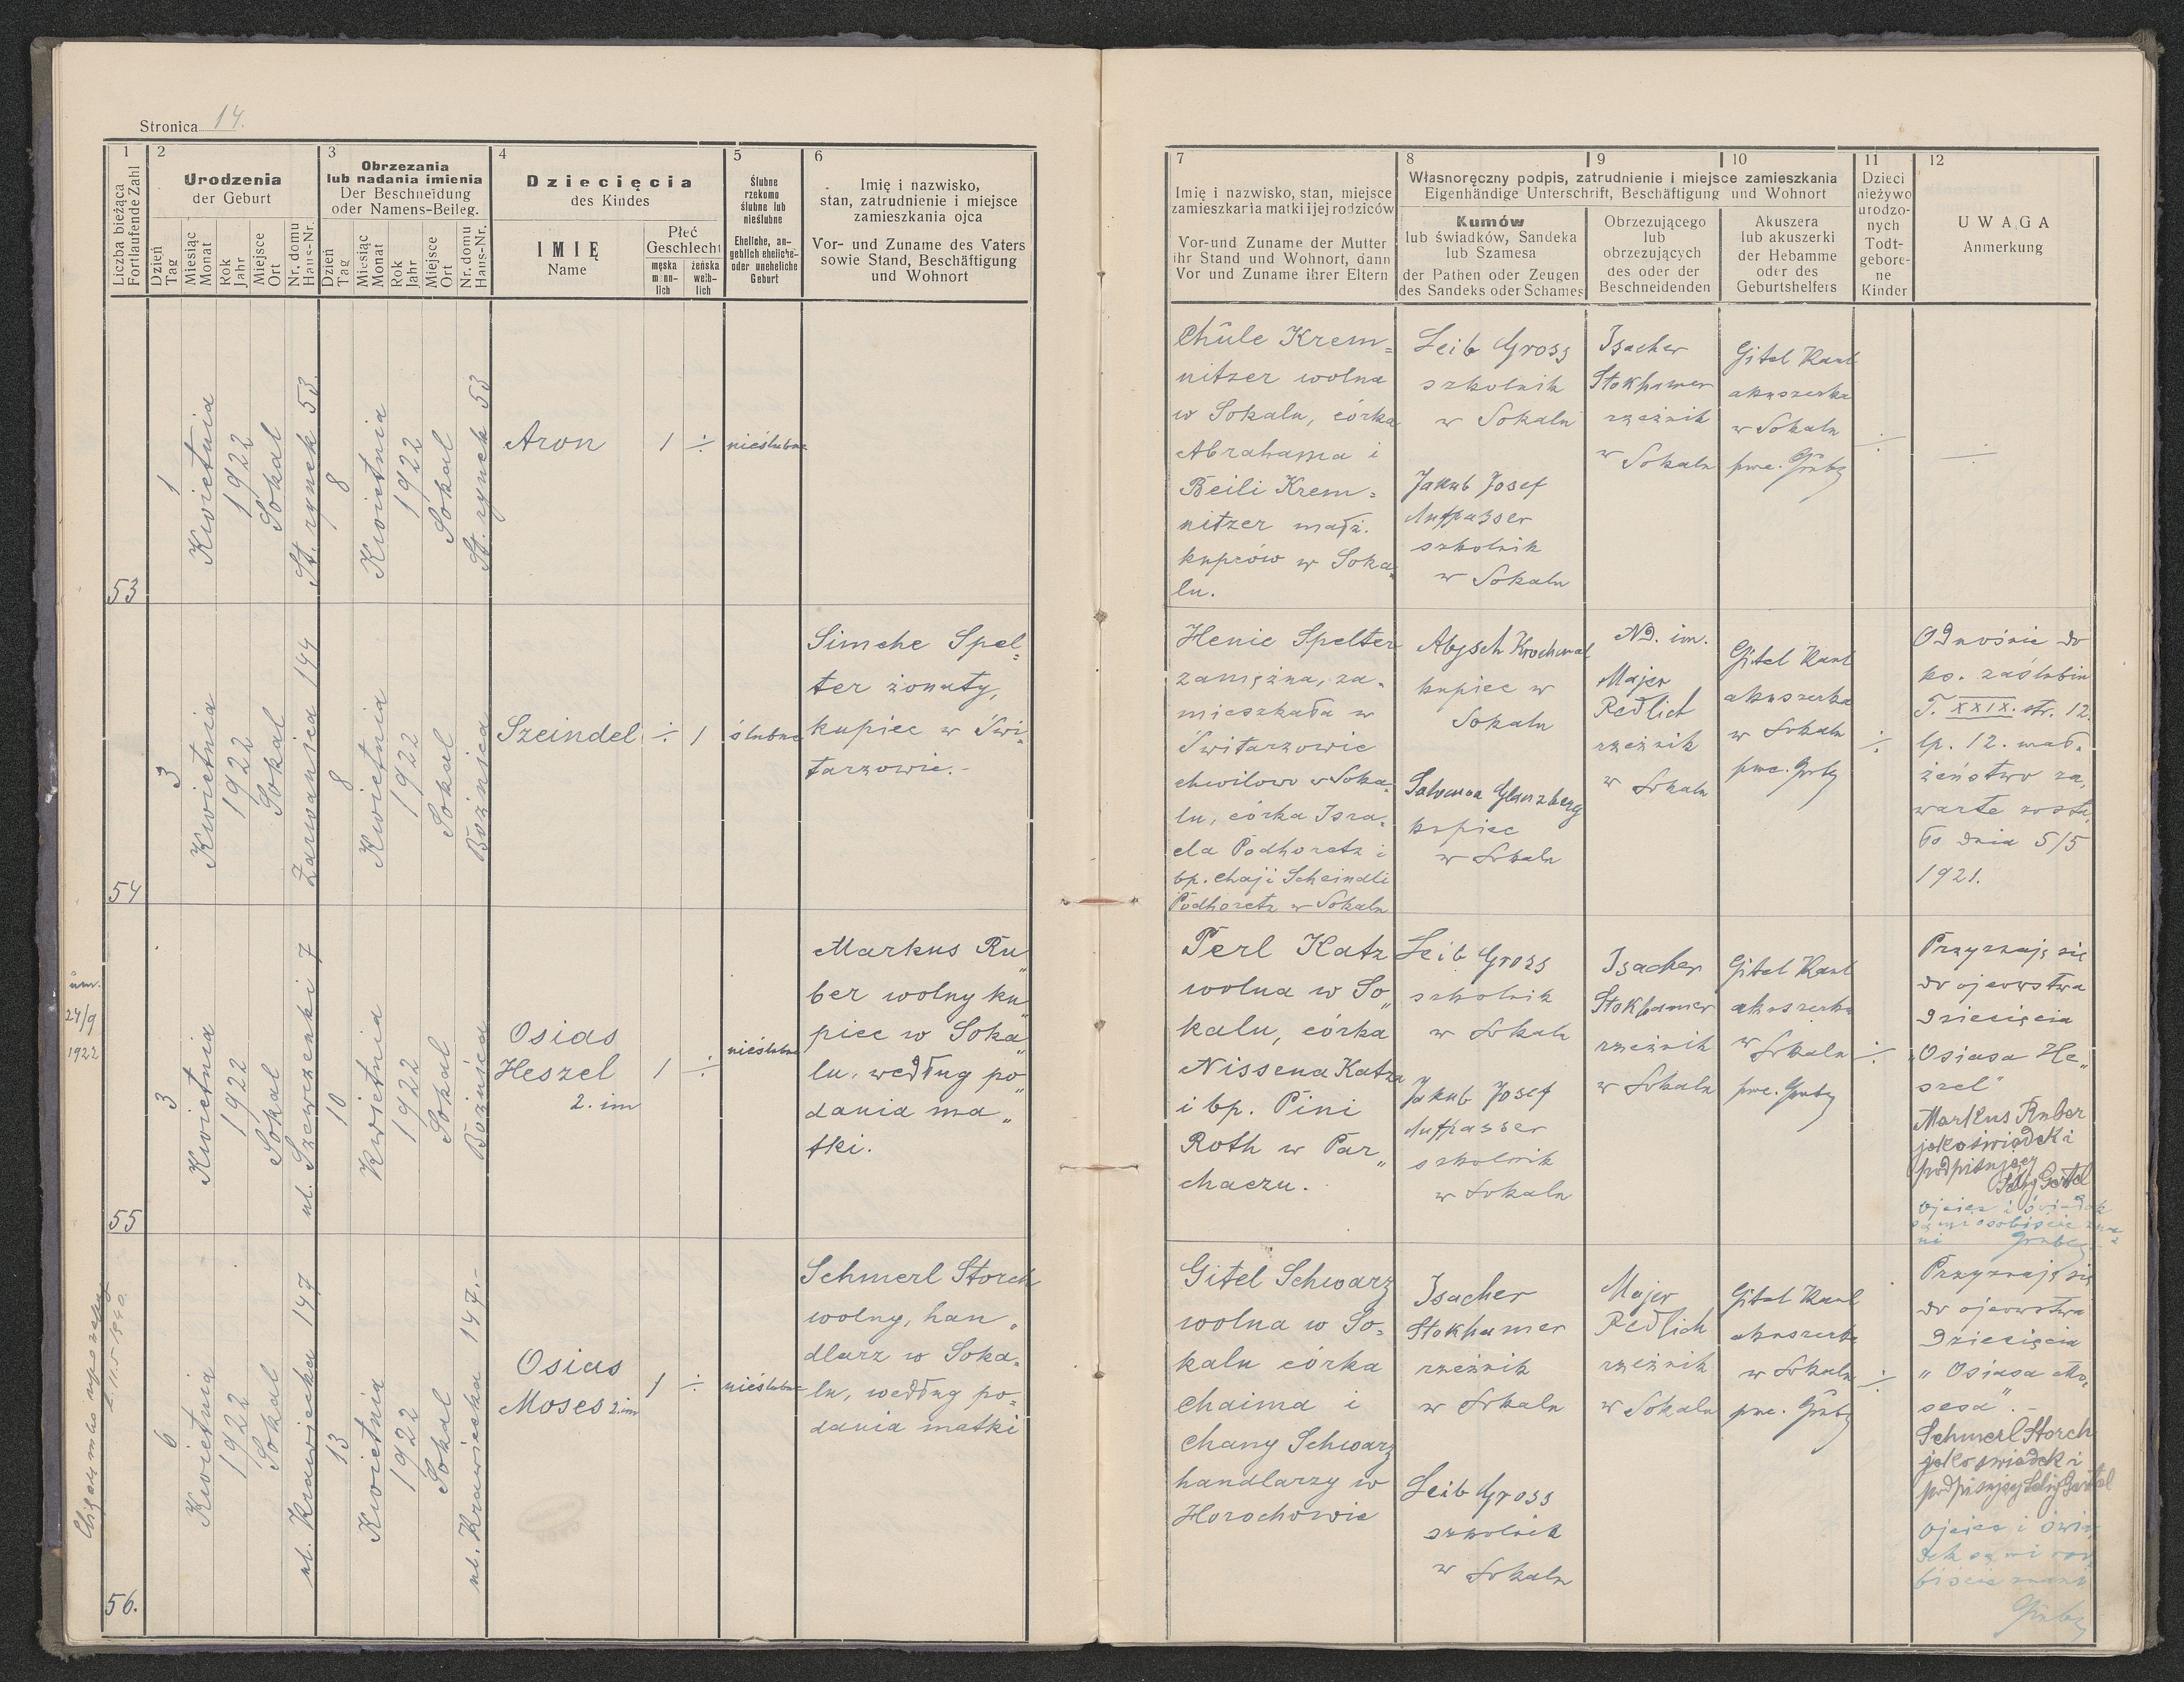 Stronica 14.
1
Liczba bieżąca
Fortlaufende Zahl
2
Urodzenia
der Geburt
Dzień
Tag
Miesiąc
Monat
Rok
Jahr
Miejsce
Ort
Nr. domu
Haus-Nr.
3
Obrzezania
lub nadania imienia
Der Beschneidung
oder Namens-Beileg.
Dzień
Tag
Miesiąc
Monat
Rok
Jahr
Miejsce
Ort
Nr. domu
Haus-Nr.
4
Dziecięcia
des Kindes
IMIĘ
Name
Płeć
Geschlecht
męska
männ-
lich
żeńska
weib-
lich
5
Ślubne
rzekomo
ślubne lub
nieślubne
Eheliche, an-
geblich eheliche-
oder uneheliche
Geburt
6
Imię i nazwisko,
stan, zatrudnienie i miejsce
zamieszkania ojca
Vor- und Zuname des Vaters
sowie Stand, Beschäftigung
und Wohnort
7
Imię i nazwisko, stan, miejsce
zamieszkania matki i jej rodziców
Vor-und Zuname der Mutter
ihr Stand und Wohnort, dann
Vor und Zuname ihrer Eltern
8
9
10
Własnoręczny podpis, zatrudnienie i miejsce zamieszkania
Eigenhändige Unterschrift, Beschäftigung und Wohnort
Kumów
lub świadków, Sandeka
lub Szamesa
der Pathen oder Zeugen
des Sandeks oder Schames
Obrzezującego
lub
obrzezujących
des oder der
Beschneidenden
Akuszera
lub akuszerki
der Hebamme
oder des
Geburtshelfers
11
Dzieci
nieżywo
urodzo-
nych
Todt-
gebore-
ne
Kinder
12
UWAGA
Anmerkung
53
1
Kwietnia
1922
Sokal
St. rynek 53.
8
Kwietnia
1922
Sokal
St. rynek 53
Aron
1
÷
nieślubne
Chüle Krem=
nitzer wolna
w Sokalu, córka
Abrahama i
Beili Krem=
nitzer małż.
kupców w Soka„
lu.
Leib Gross
szkolnik
w Sokalu
Jakub Josef
Aufpasser
szkolnik
w Sokalu
Isacher
Stokhamer
rzeźnik
w Sokalu
Gitel Kanl
akuszerka
w Sokalu
÷
÷
54
3
Kwietnia
1922
Sokal
Zarwanica 144
8
Kwietnia
1922
Sokal
Bożnica
Szeindel
÷
1
ślubne
Simche Spel=
ter żonaty,
kupiec w Świ=
tarzowie.-
Henie Spelter
zamężna, za=
mieszkała w
Świtarzowie
chwilowo w Soka=
lu, córka Izra=
ela Podhoretz i
bp. Chaji Scheindli
Podhoretz w Sokalu
Abysch Krochmal
kupiec w
Sokalu
Glanzberg
kupiec
w Sokalu
ND. im.
Majer
Redlich
rzeźnik
w Sokalu
Gitel Kanl
akuszerka
w Sokalu
÷
Odnośnie do
ks. zaślubin
T. XXIX. str. 12.
lp. 12. mał=
żeństwo za=
warte zosta=
ło dnia 5/5
1921.
24/9
1922
55
3
Kwietnia
1922
Sokal
ul. Szewczenki 7
10
Kwietnia
1922
Sokal
Bożnica
Osias
Heszel
2. im
1
÷
nieślubne
Markus Ru„
ber wolny ku„
piec w Soka„
lu. według po„
dania ma„
tki.
Perl Katz
wolna w So„
kalu, córka
Nissena Katza
i bp. Pini
Roth w Par„
chaczu.
Leib Gross
szkolnik
w Sokalu
Jakub Josef
Aufpasser
szkolnik
w Sokalu
Isacher
Stokhamer
rzeźnik
w Sokalu
Gitel Kanl
akuszerka
w Sokalu
÷
Przyznaję się
do ojcowstwa
dziecięcia
„Osiasa He„
szel"
Markus Ruber
jako świadek i
podpisujący
Ojciec i świadek
są mi osobiście zna=
ni
56.
6
Kwietnia
1922
Sokal
ul. Krawiecka 147
13
Kwietnia
1922
Sokal
ul. Krawiecka 147.-
Osias
Moses 2.im
1
÷
nieślubne
Schmerl Storch
wolny, han=
dlarz w Soka=
lu, według po=
dania matki
Gitel Schwarz
wolna w So=
kalu córka
Chaima i
Chany Schwarz
handlarzy w
Horochowie
Isacher
Stokhamer
rzeźnik
w Sokalu
Leib Gross
szkolnik
w Sokalu
Majer
Redlich
rzeźnik
w Sokalu
Gitel Kanl
akuszerka
w Sokalu
÷
Przyznaję się
do ojcowstwa
dziecięcia
„Osiasa Mo=
sesa".-
Schmerl Storch
jako świadek i
podpisujący
Ojciec i świa=
dek są mi oso=
biście znani